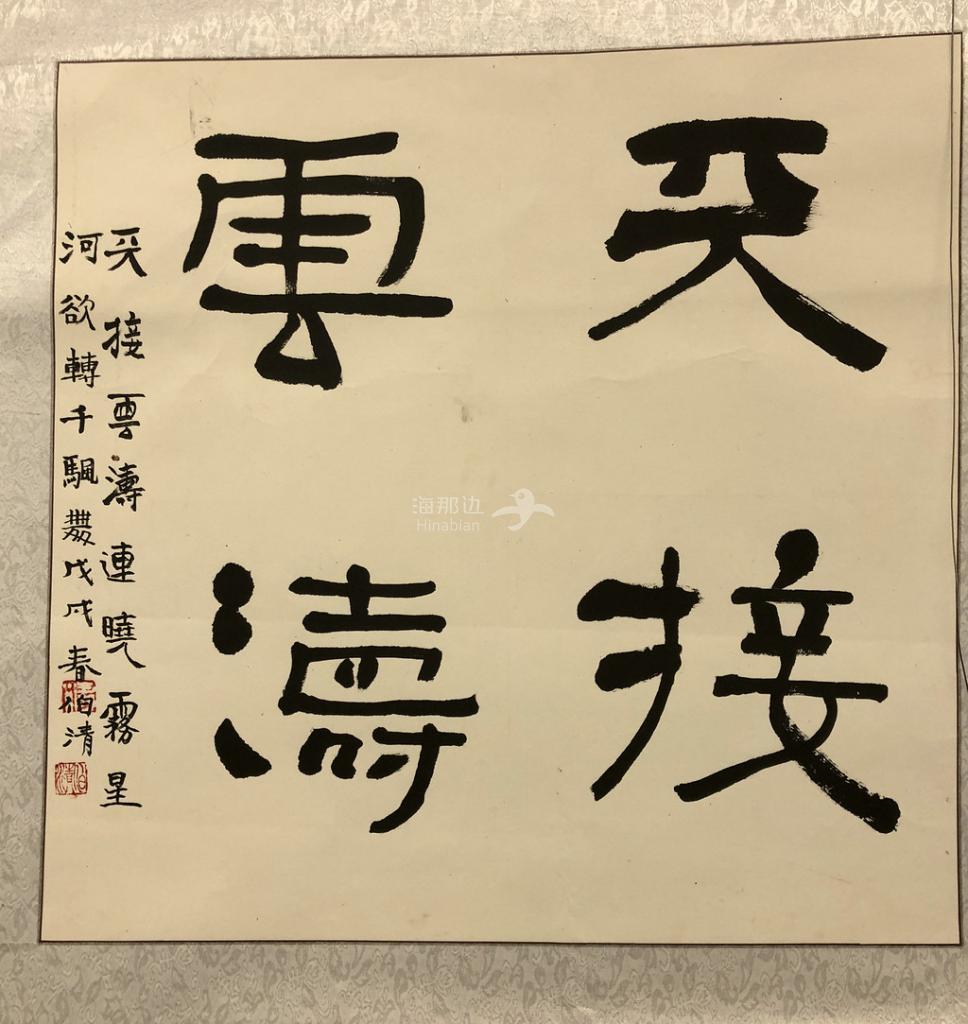 天接
雲濤
天接雲濤連曉霧星
河欲轉千颿舞戊戌春伯清
伯清
海那边
Hinabian